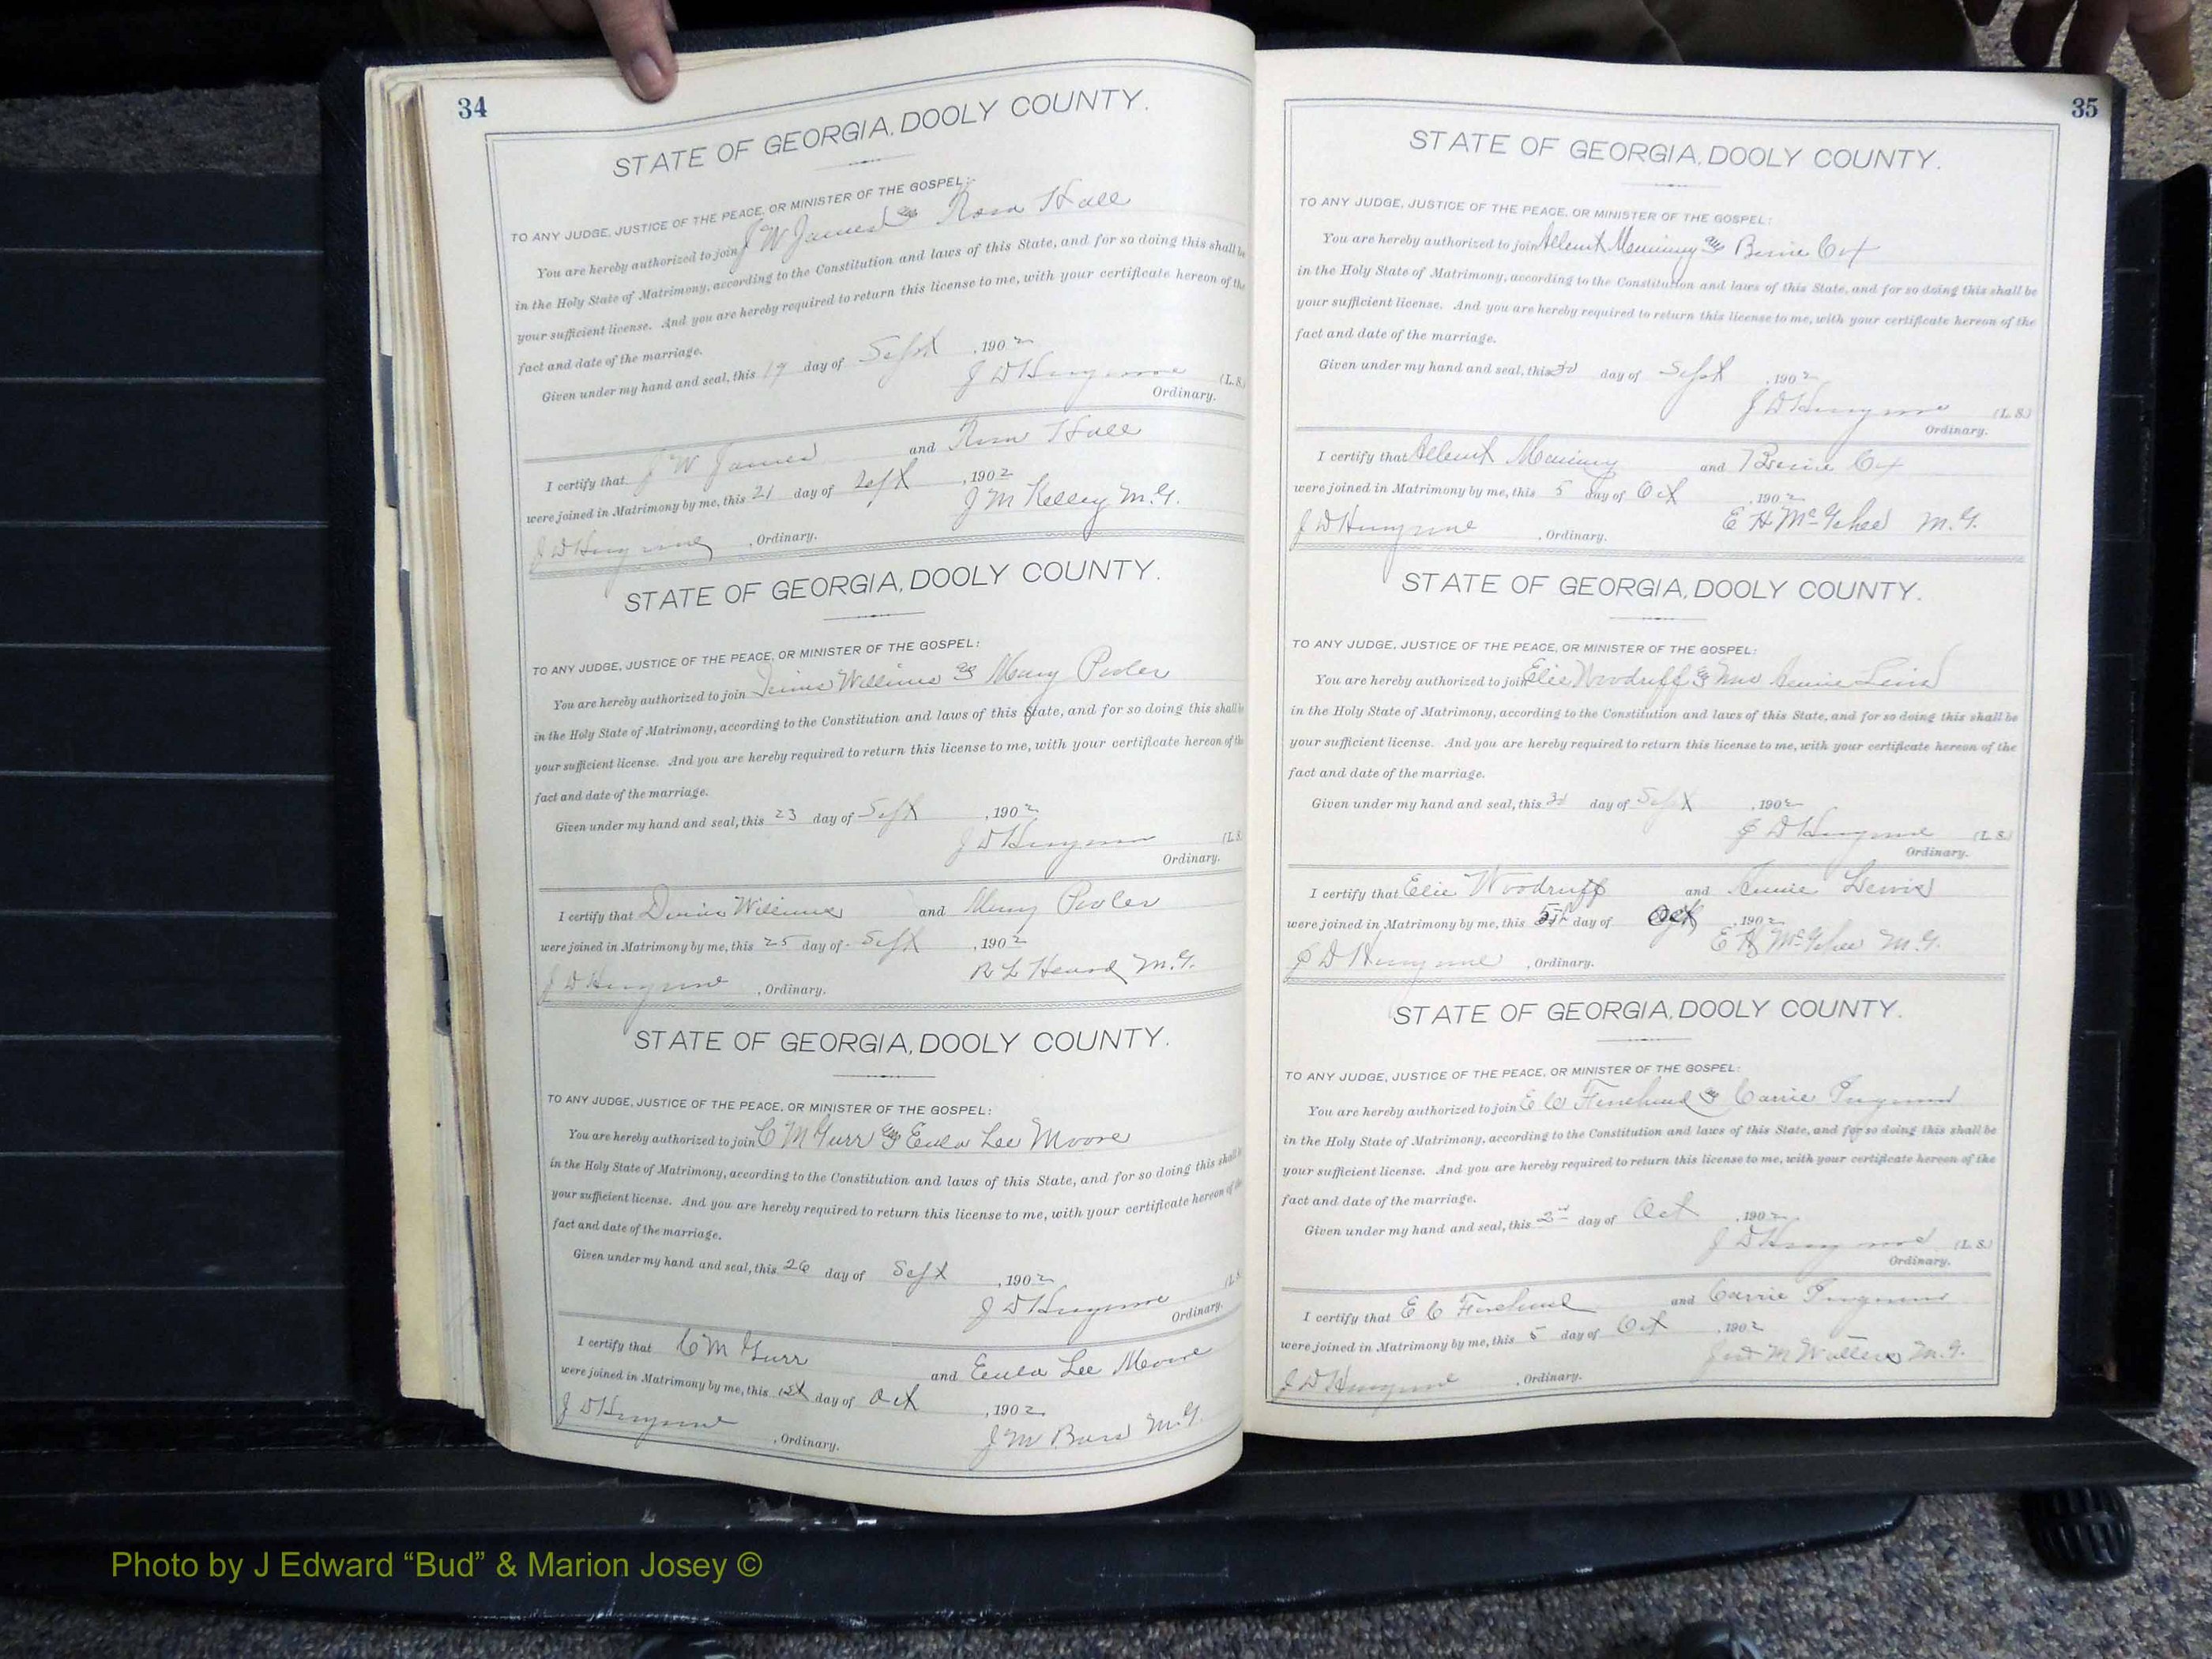 34
STATE OF GEORGIA, DOOLY COUNTY.
TO ANY JUDGE, JUSTICE OF THE PEACE, OR MINISTER OF THE GOSPEL:
You are hereby authorized to join J W James & Rosa Hall
in the Holy State of Matrimony, according to the Constitution and laws of this State, and for so doing this shall be
your sufficient license. And you are hereby required to return this license to me, with your certificate hereon of the
fact and date of the marriage.
Given under my hand and seal, this 19 day of Sept , 1902
J D (L. S.)
Ordinary.
I certify that J W James and Rosa Hall
were joined in Matrimony by me, this 21 day of Sept , 1902
J M Kelley M.G.
J D , Ordinary.
STATE OF GEORGIA, DOOLY COUNTY.
TO ANY JUDGE, JUSTICE OF THE PEACE, OR MINISTER OF THE GOSPEL:
You are hereby authorized to join Williams & Mary Pooler
in the Holy State of Matrimony, according to the Constitution and laws of this State, and for so doing this shall be
your sufficient license. And you are hereby required to return this license to me, with your certificate hereon of the
fact and date of the marriage.
Given under my hand and seal, this 23 day of Sept , 1902
J D (L. S.
Ordinary.
I certify that Williams and Mary Pooler
were joined in Matrimony by me, this 25 day of Sept , 1902
R L Heard M.G.
J D , Ordinary.
STATE OF GEORGIA, DOOLY COUNTY.
TO ANY JUDGE, JUSTICE OF THE PEACE, OR MINISTER OF THE GOSPEL:
You are hereby authorized to join C M Gurr & Eula Lee Moore
in the Holy State of Matrimony, according to the Constitution and laws of this State, and for so doing this shall
your sufficient license. And you are hereby required to return this license to me, with your certificate hereon of the
fact and date of the marriage.
Given under my hand and seal, this 26 day of Sept , 1902
J D (L.
Ordinary.
I certify that C M Gurr and Eula Lee Moore
were joined in Matrimony by me, this day of Oct , 1902
J M M.G.
J D , Ordinary.
35
STATE OF GEORGIA, DOOLY COUNTY.
TO ANY JUDGE, JUSTICE OF THE PEACE, OR MINISTER OF THE GOSPEL:
You are hereby authorized to join & Cox
in the Holy State of Matrimony, according to the Constitution and laws of this State, and for so doing this shall be
your sufficient license. And you are hereby required to return this license to me, with your certificate hereon of the
fact and date of the marriage.
Given under my hand and seal, this day of Sept , 1902
J D (L. S.)
Ordinary.
I certify that and Cox
were joined in Matrimony by me, this 5 day of Oct , 1902
E H McGehee M.G.
J D , Ordinary.
STATE OF GEORGIA, DOOLY COUNTY.
TO ANY JUDGE, JUSTICE OF THE PEACE, OR MINISTER OF THE GOSPEL:
You are hereby authorized to join Elie Woodruff & Mrs Annie Lewis
in the Holy State of Matrimony, according to the Constitution and laws of this State, and for so doing this shall be
your sufficient license. And you are hereby required to return this license to me, with your certificate hereon of the
fact and date of the marriage.
Given under my hand and seal, this day of Sept , 1902
J D (L. S.)
Ordinary.
I certify that Elie Woodruff and Annie Lewis
were joined in Matrimony by me, this 5th day of Oct , 1902
E H McGehee M.G.
J D , Ordinary.
STATE OF GEORGIA, DOOLY COUNTY.
TO ANY JUDGE, JUSTICE OF THE PEACE, OR MINISTER OF THE GOSPEL:
You are hereby authorized to join E C & Carrie
in the Holy State of Matrimony, according to the Constitution and laws of this State, and for so doing this shall be
your sufficient license. And you are hereby required to return this license to me, with your certificate hereon of the
fact and date of the marriage.
Given under my hand and seal, this day of Oct , 1902
J D (L. S.)
Ordinary.
I certify that E C and Carrie
were joined in Matrimony by me, this 5 day of Oct , 1902
M Walters M.G.
J D , Ordinary.
Photo by J Edward “Bud” & Marion Josey ©